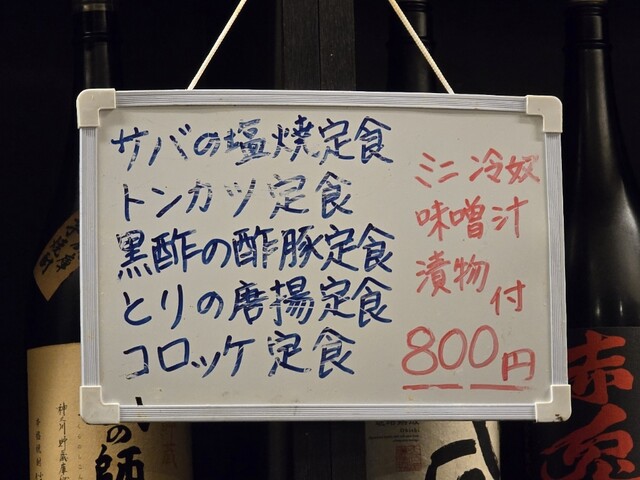 サバの塩焼定食
トンカツ定食
黒酢の酢豚定食
とりの唐揚定食
コロッケ定食
ミニ冷奴
味噌汁
漬物
付
800円
の師
赤兎